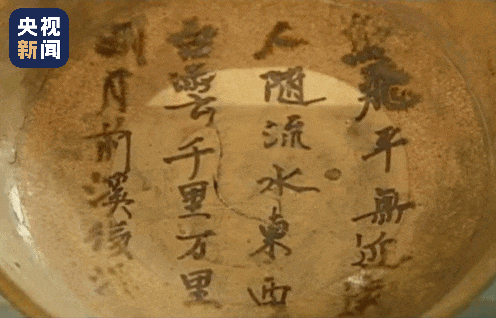 央视
新闻
飛平無近遠
人隨流水東西
雲千里万里
明月前溪後溪